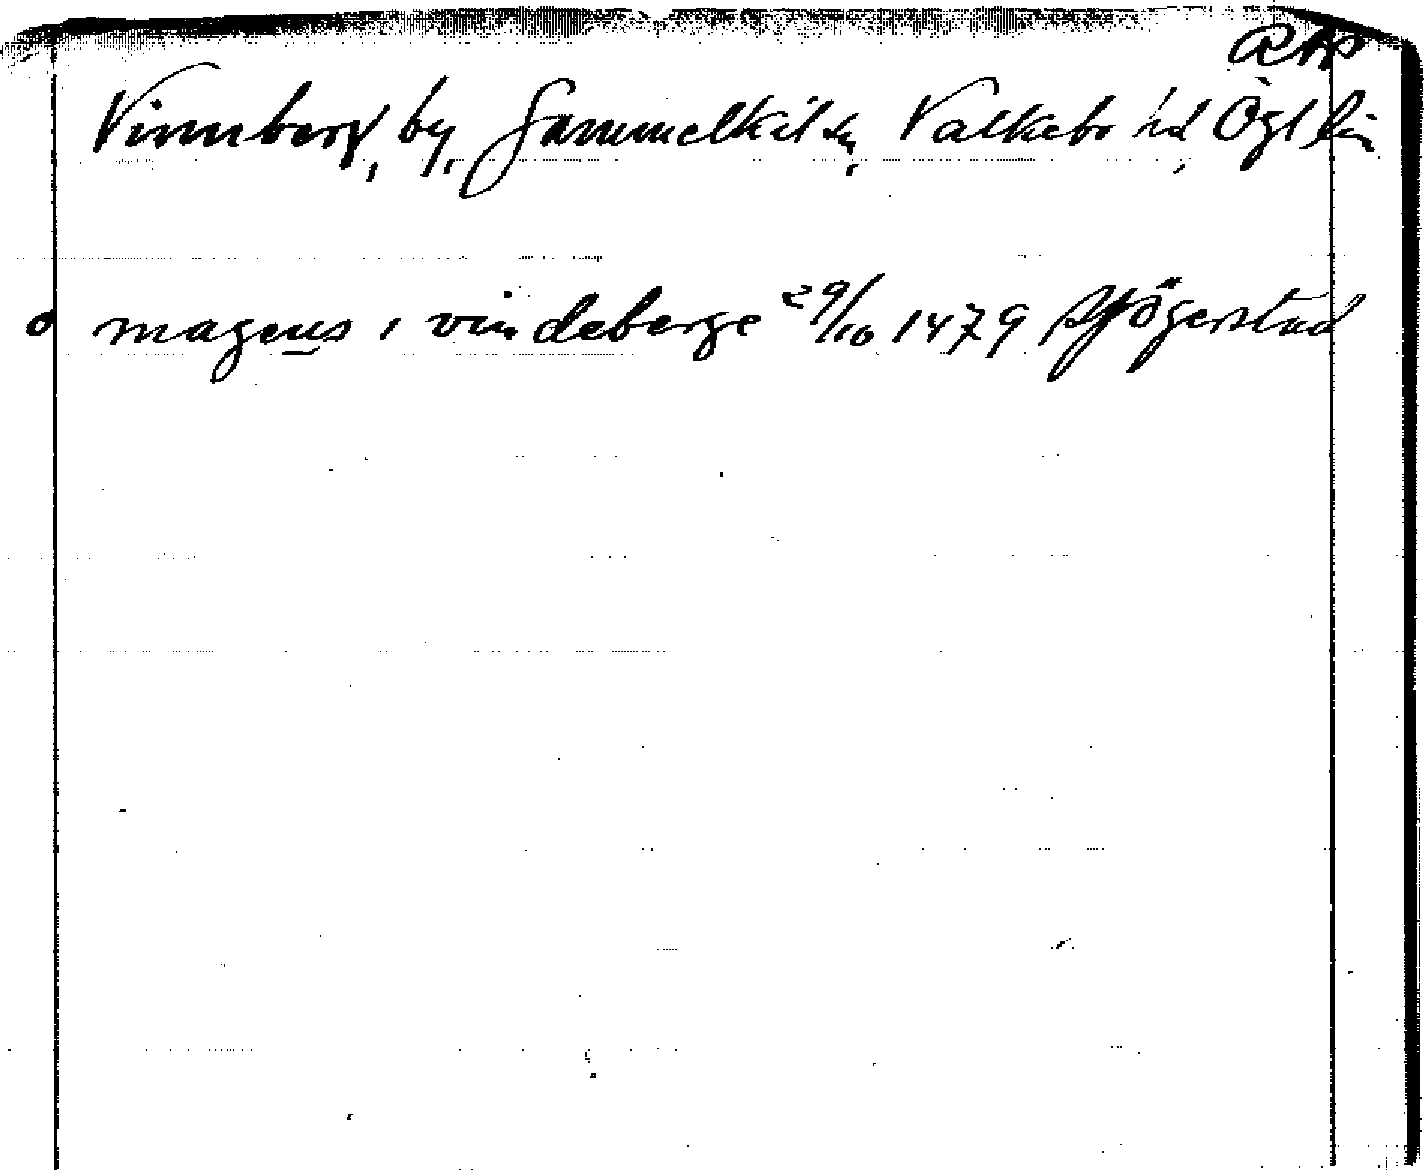 RAP
Vinnberg, by, Gammelkil sn, Valkebo hd, Ögl län
o magnus i vindeberge 29/10 1479 Sjögerstad